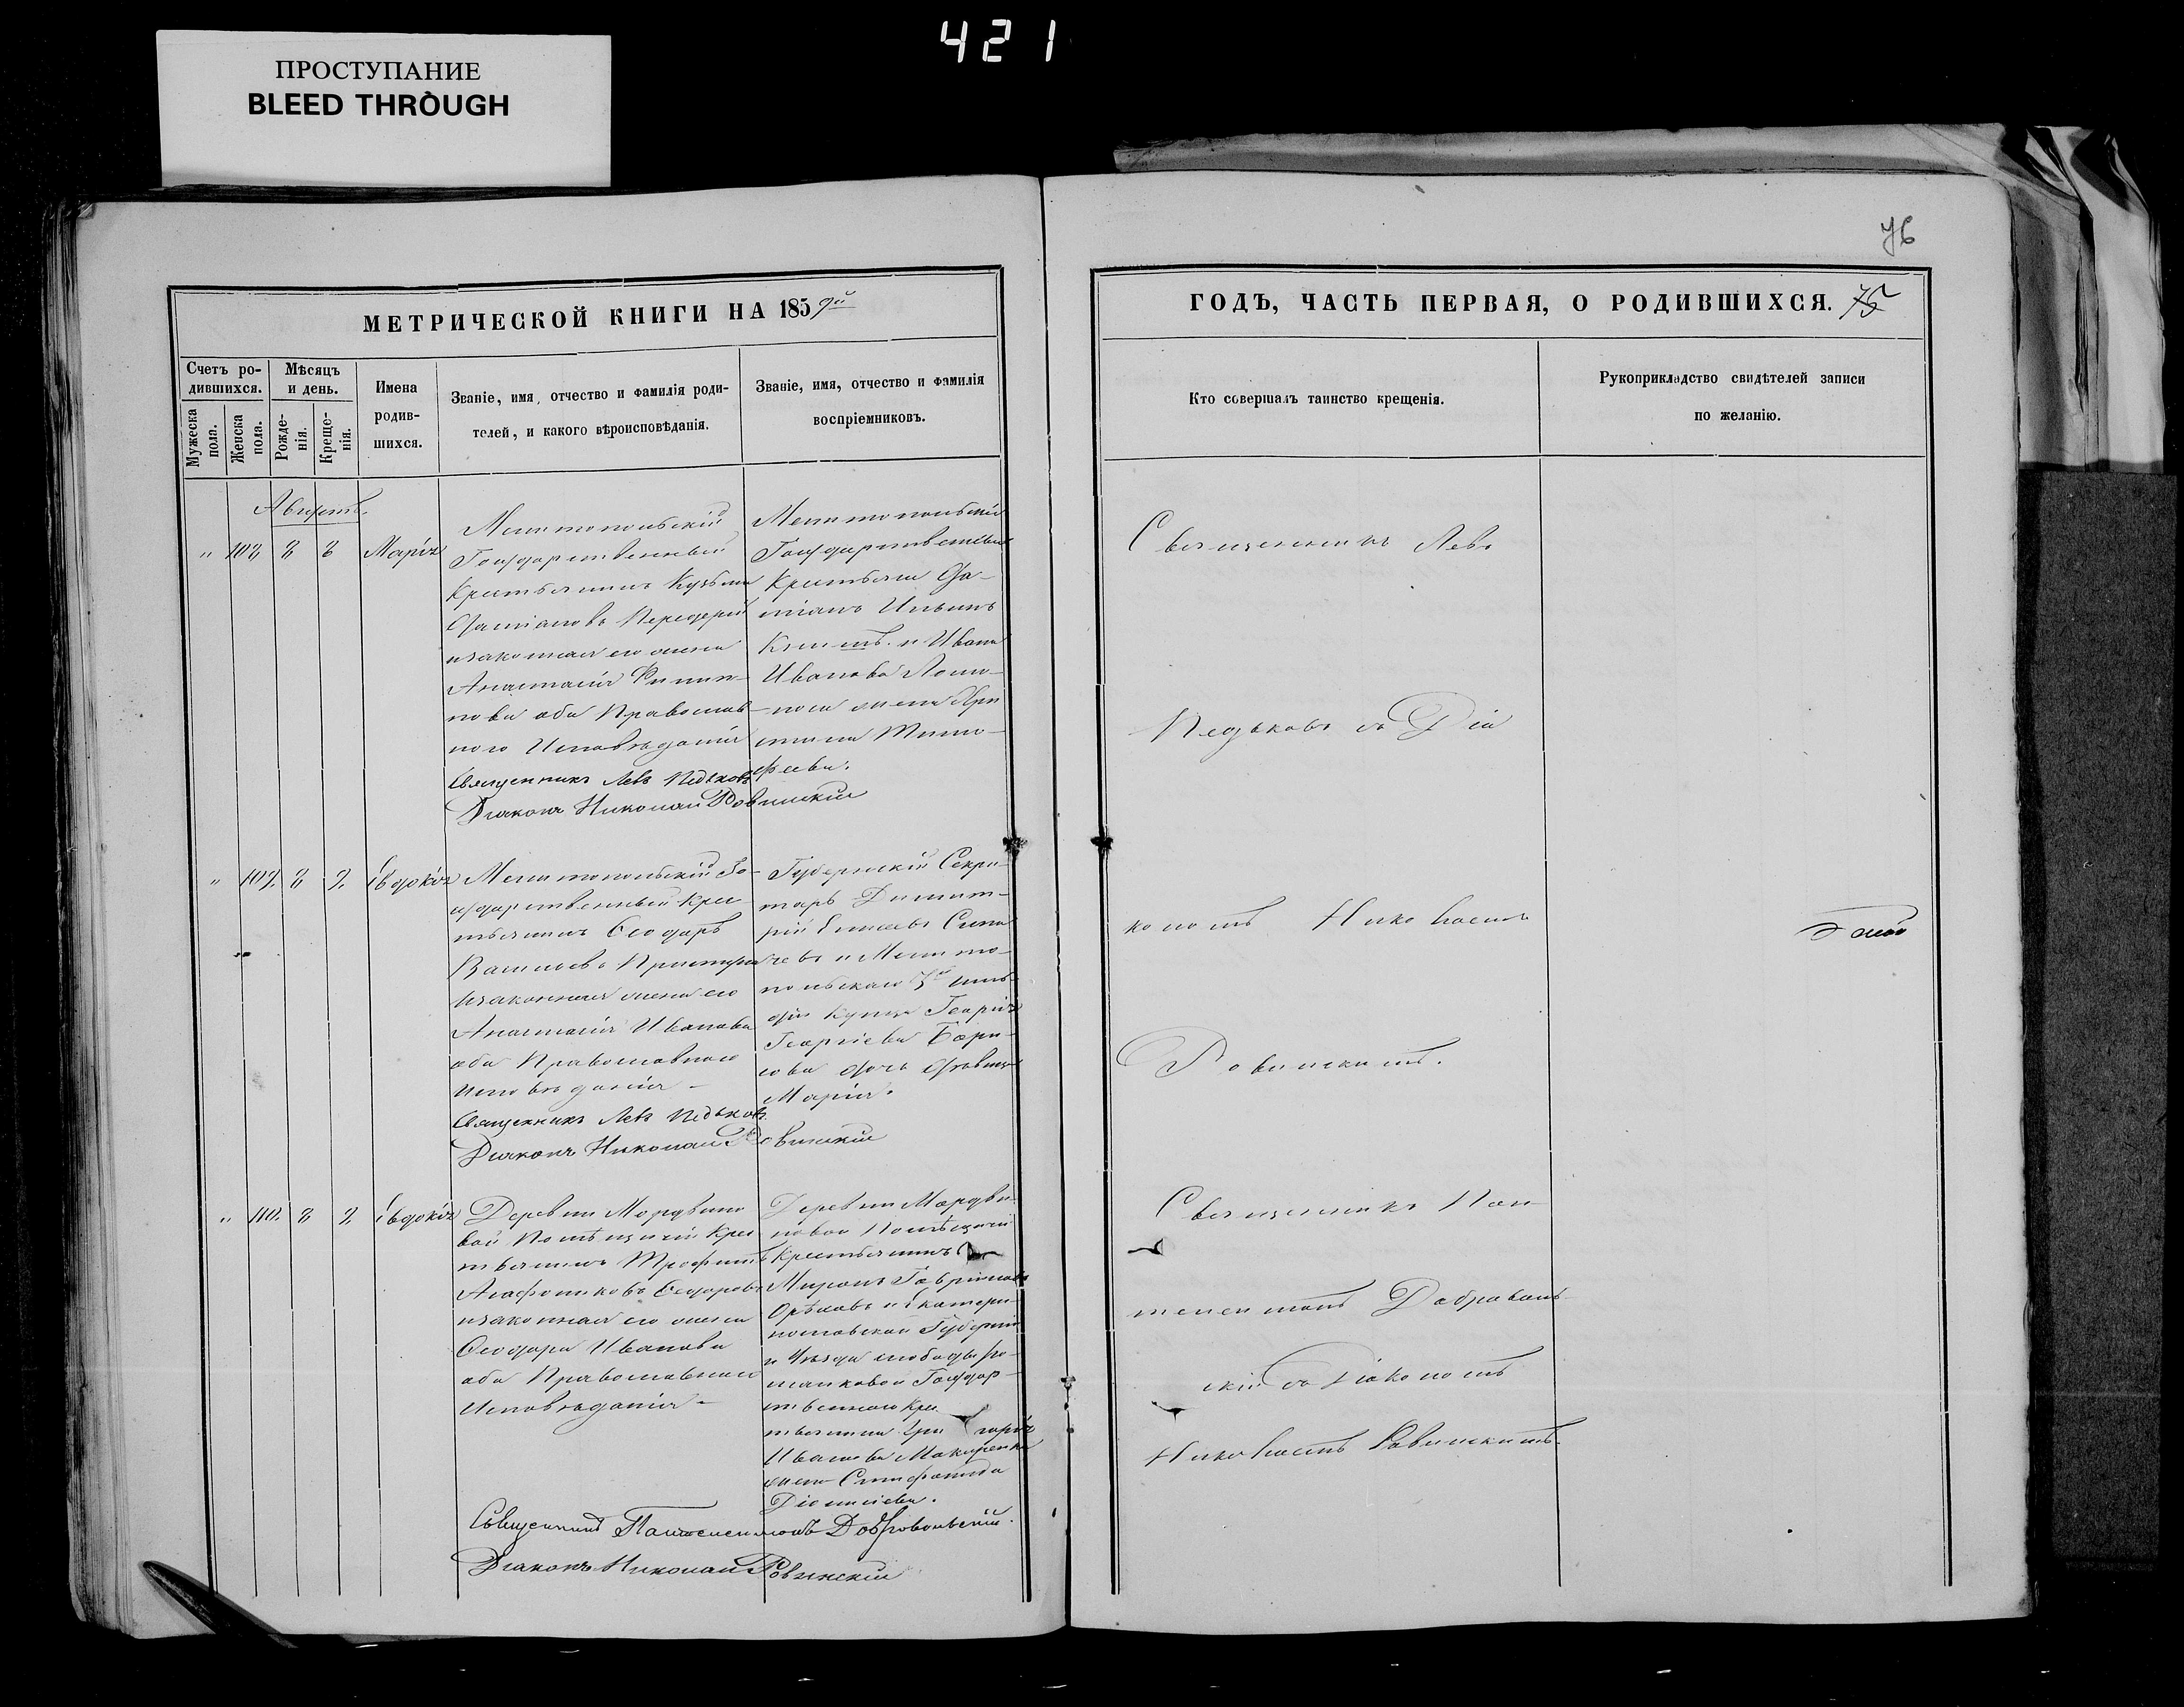 421
ПРОСТУПАНИЕ
BLEED THROUGH
76
МЕТРИЧЕСКОЙ КНИГИ НА 1859й
Счетъ ро-
дившихся.
Мужеска
пола.
Женска
пола.
Мѣсяцъ
и день.
Рожде-
нія.
Креще-
нія.
Имена
родив-
шихся.
Званіе, имя, отчество и фамилія роди-
телей, и какого вѣроисповѣданія.
Званіе, имя, отчество и фамилія
воспріемниковъ.
Августъ.
" 108 8 8 Марія
Мелитопольскій
Государственный
Крестьянинъ Кузьма
изаконная его жена
Анастасія Филип-
пова оба Православ-
ного Исповѣданія
Священникъ Левъ Педьковъ
Діаконъ Николай Ровинскій
Мелитопольскіе
Государственные
Крестьяне Да-
міанъ Ильинъ
и Ивана
Иванова
жена Хри
стина Тимо-
феева.
" 109 8 9 Евдокія
Мелитопольскій Го-
сударственный Крес
тьянинъ Ѳеодоръ
Васильевъ
изаконная жена его
Анастасія Иванова
оба Православного
Исповѣданія -
Священникъ Левъ Педьковъ
Діаконъ Николай Ровинскій
Губернскій Секре-
тарь Димит-
рій
и Мелито-
польскаго 3й гиль
діи купца Георгія
Георгіева Бори-
сова дочь дѣвица
Марія.
" 110. 8 9 Евдокія
Деревни Мордвино
вой Помѣщичій Крес
тьянинъ Трофимъ
Агафониковъ Ѳеодоровъ
изаконная его жена
Ѳеодора Иванова
оба Православнаго
Исповѣданія -
Деревни Мордви-
новой Помѣщичій
Крестьянинъ
Миронъ Гавриловъ
Орѣховъ и Екатери-
нославской Губерніи
и Уѣзда слободы Ро-
манковой Государ-
ственнаго Крес
тьянина Григорія
Иванова Макаренка
жена
Діонисіева.
Священникъ Пантелеимонъ Добровольскій.
Діаконъ Николай Ровинскій
ГОДЪ, ЧАСТЬ ПЕРВАЯ, О РОДИВШИХСЯ. 75
Кто совершалъ таинство крещенія.
Рукоприкладство свидѣтелей записи
по желанію.
Священникъ Левъ
Педьковъ съ Діа
кономъ Николаемъ
Ровинскимъ.
Священникъ Пан
телеимонъ Доброволь-
скій съ Діакономъ
Николаемъ Ровинскимъ.